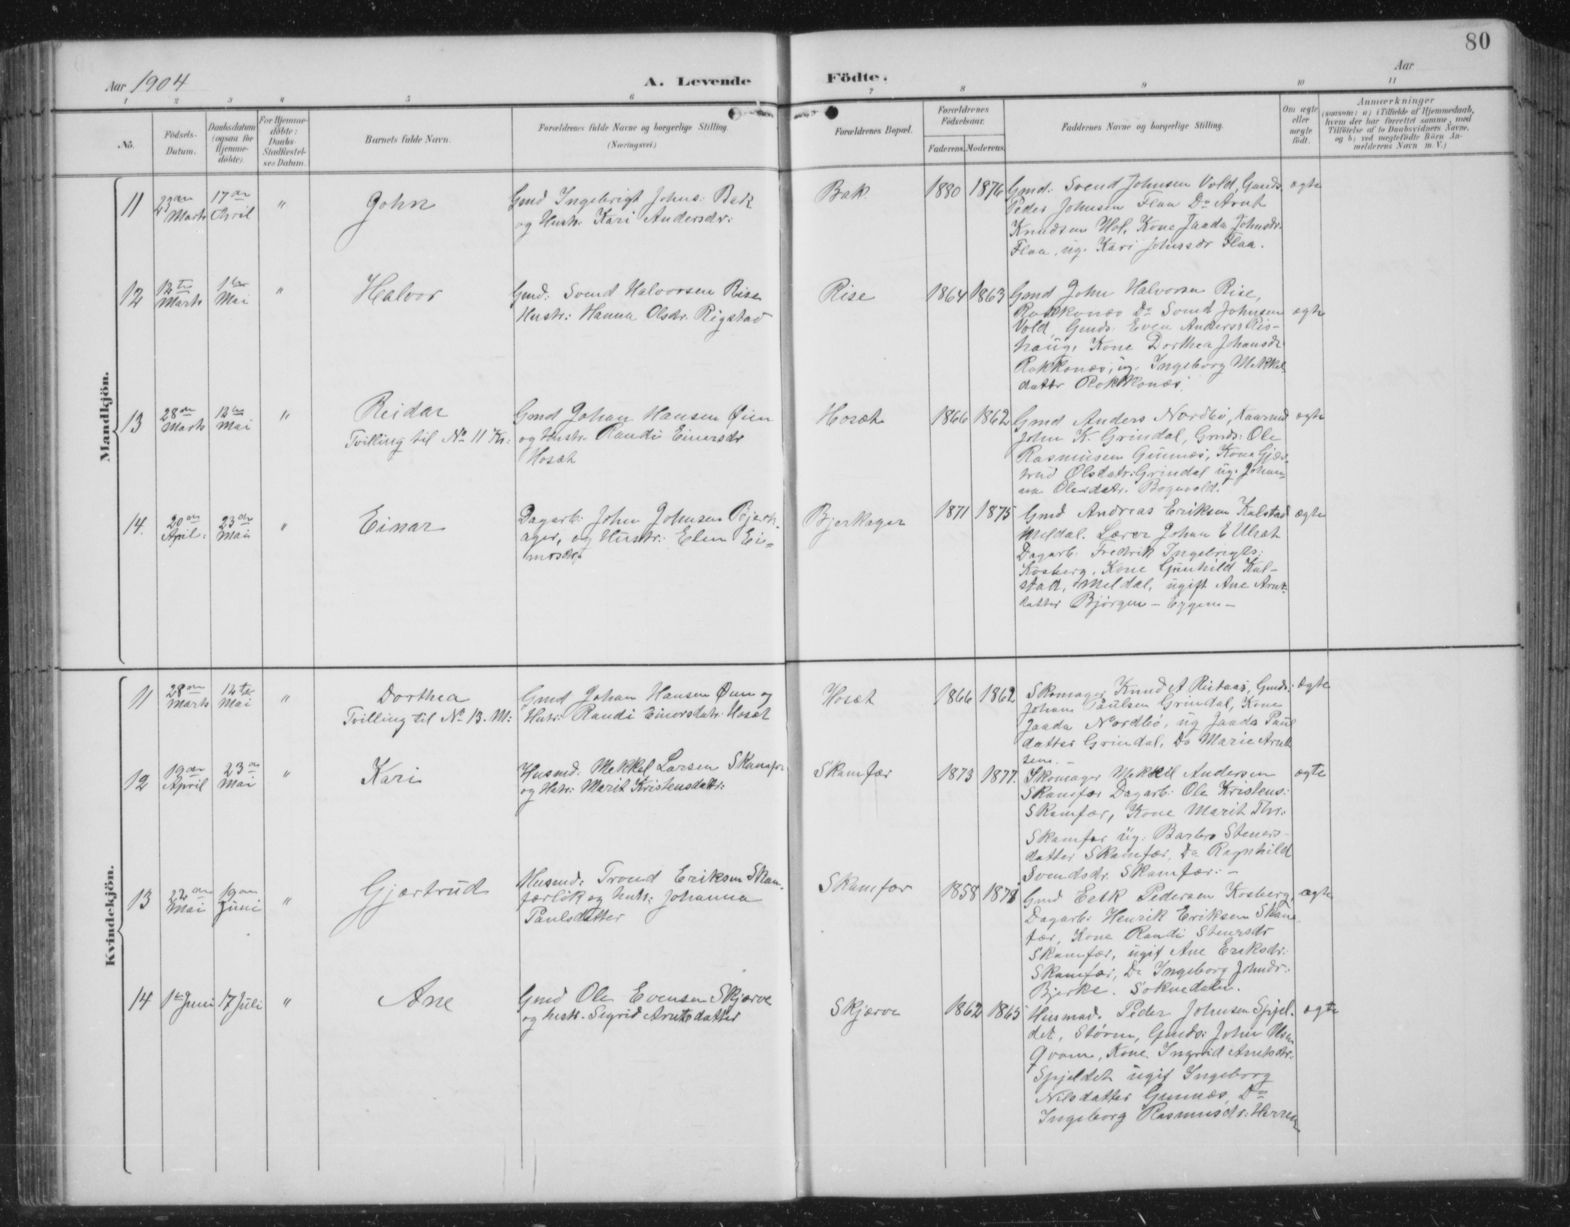 80
Aar 1904
A. Levende
Födte.
Aar
1 2 3 4 5 6 7 8 9 10 11
No.
Födsels-
Datum.
Daabsdatum
(ogsaa for
Hjemme-
döbte).
For Hjemme-
döbte:
Daabs-
Stadfæstel-
ses Datum.
Barnets fulde Navn.
Forældrenes fulde Navne og borgerlige Stilling.
(Næringsvei)
Forældrenes Bopæl.
Forældrenes
Födselsaar.
Faderens. Moderens.
Faddernes Navne og borgerlige Stilling.
Om ægte
eller
uægte
födt.
Anmærkninger
Mandkjön.
11
17de
April
"
John
Gmd Ingebrigt Johns. Bak
og Hustr. Kari Andersdr:
Bak
1880 1876
Gmd. Svend Johnsen Vold, Gmds.
Peder Johnsen Flaa Do Arnt
Knudsen Hol, Kone Jaada Johnsdr.
Flaa, ug. Kari Johnsdr Flaa.
ægte
12
12te
Marts
1ste
Mai
"
Halvor
Gmd. Svend Halvorsen Rise
Hustr: Hanna Olsdr. Rigstad
Rise
1864 1863
Gmd John Halvorsen Rise,
Rokkonæs Do Svend Johnsen
Vold, Gmds. Even Anders: Ris-
haug, Kone Dorthea Johansdr
Rokkonæs, ug. Ingeborg Mekkel
datter Rokkonæs.
ægte
13
28de
Marts
12te
Mai
"
Reidar
Tvilling til No 11 Kv:
Gmd Johan Hansen Øien
og Hustr. Randi Einersdr
Hosæt
Hosæt
1866 1862
Gmd Anders Nordbø,
John K. Grindal, Gmds: Ole
Rasmusen Gunnæs, Kone Gjær-
trud Olsdatr. Grindal ug. Johan-
na Olesdatr. Bogevold.
ægte
14.
20de
April.
23de
Mai
"
Einar
Dagarb. John Johnsen Bjerk-
ager, og Hustr: Elen Ei-
norsdr.
Bjerkager
1871 1875
Gmd Andreas Eriksen Kalstad
Meldal. Lærer Johan E Ulsæt
Dagarb. Fredrik Ingebrigts:
Kosberg, Kone Gunhild Kal-
stad, Meldal, ugift Ane Arnt-
datter Bjørgen - Eggen -
ægte
Kvindekjön.
11
28de
Marts
12te
Mai
"
Dorthea
Tvilling til No 13. M:
Gmd Johan Hansen Øien og
Hustr: Randi Einorsdatr. Hosæt
Hosæt
1866 1862
Skomager Knud A Risaas, Gmds:
Johan Paulsen Grindal, Kone
Jaada Nordbø, ug Jaada Paul
datter Grindal, Do Marie Arnt
sen. -
ægte
12
19de
April
23de
Mai
"
Kari
Husmd. Mekkel Larsen Skamfær
og Hstr: Marit Kristensdatr:
Skamfær
1873 1877.
Skomager Mekkel Andersen
Skamfær Dagarb: Ole Kristens:
Skamfær, Kone Marit Thr:
Skamfær ug: Barbro Steners-
datter Skamfær, Do Ragnhild
Svendsdr. Skamfær. -
ægte
13
22de
Mai
19de
Juni
"
Gjærtrud
Husmd: Trond Eriksen Skam-
færløk og hustr: Johanna
Paulsdatter
Skamfær
1858 1878
Gmd Erik Pedersen Kosberg,
Dagarb: Henrik Eriksen Skam-
fær, Kone Randi Stenersdr
Skamfær, ugift Ane Eriksdr:
Skamfær, Do Ingeborg Johnsdr.
Bjerke. Soknedalen.
ægte
14
1ste Juni
17 Juli
"
Ane
Gmd Ole Evensen Skjærve
og hustr. Sigrid Arntsdatter
Skjærve
1862 1865
Husmd. Peder Johnsen Spjel-
det, Støren, Gmds: John Olsen
Qvam, Kone Ingrid Arntsdr.
Spjeldet ugift Ingeborg
Nilsdatter Gunnæs, Do
Ingeborg Rasmusdr. Herren
ægte